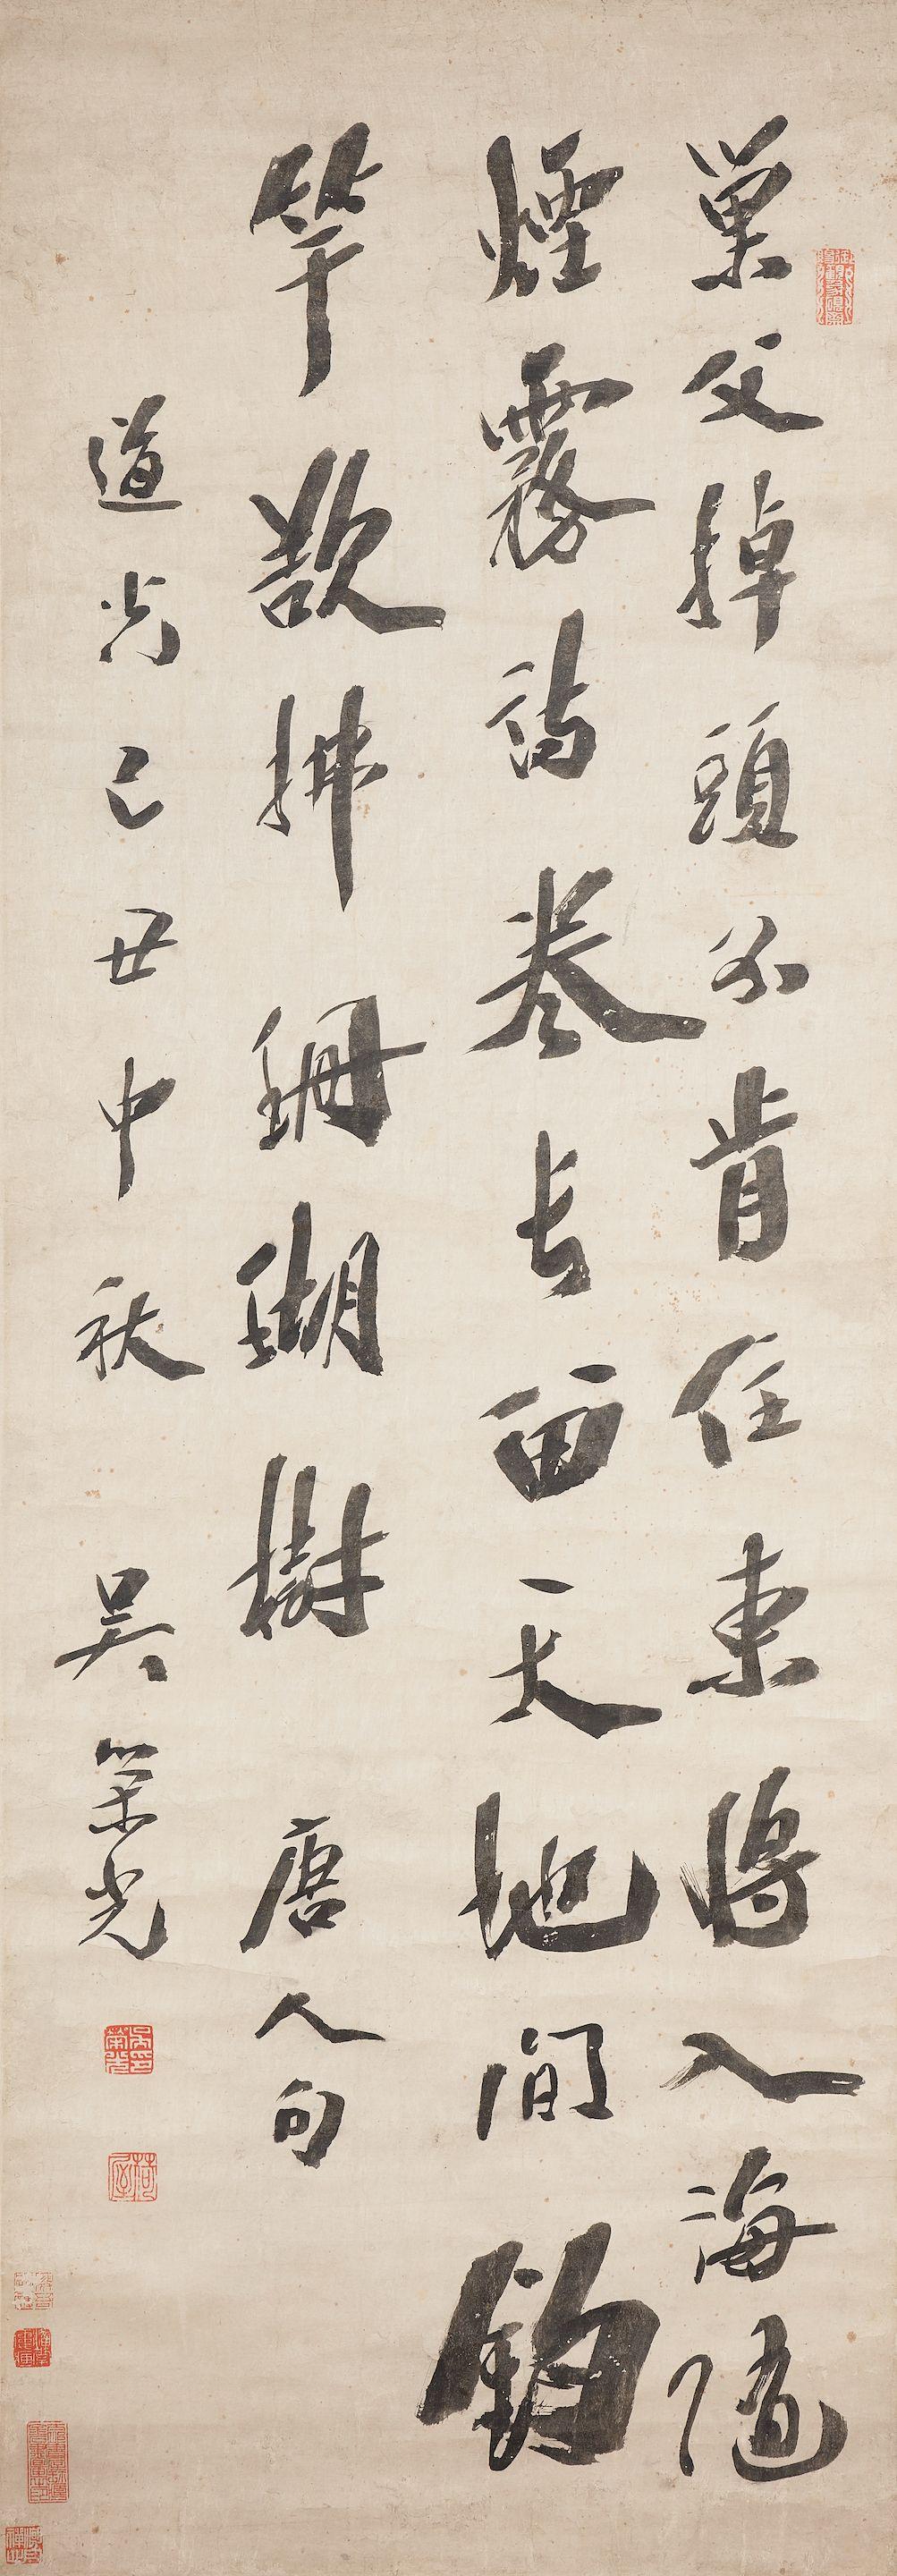 巢父掉頭不肯任東將入海隨
煙霧詩卷長留天地間釣
竿欲拂珊瑚樹 唐人句
道光己丑中秋 吳榮光